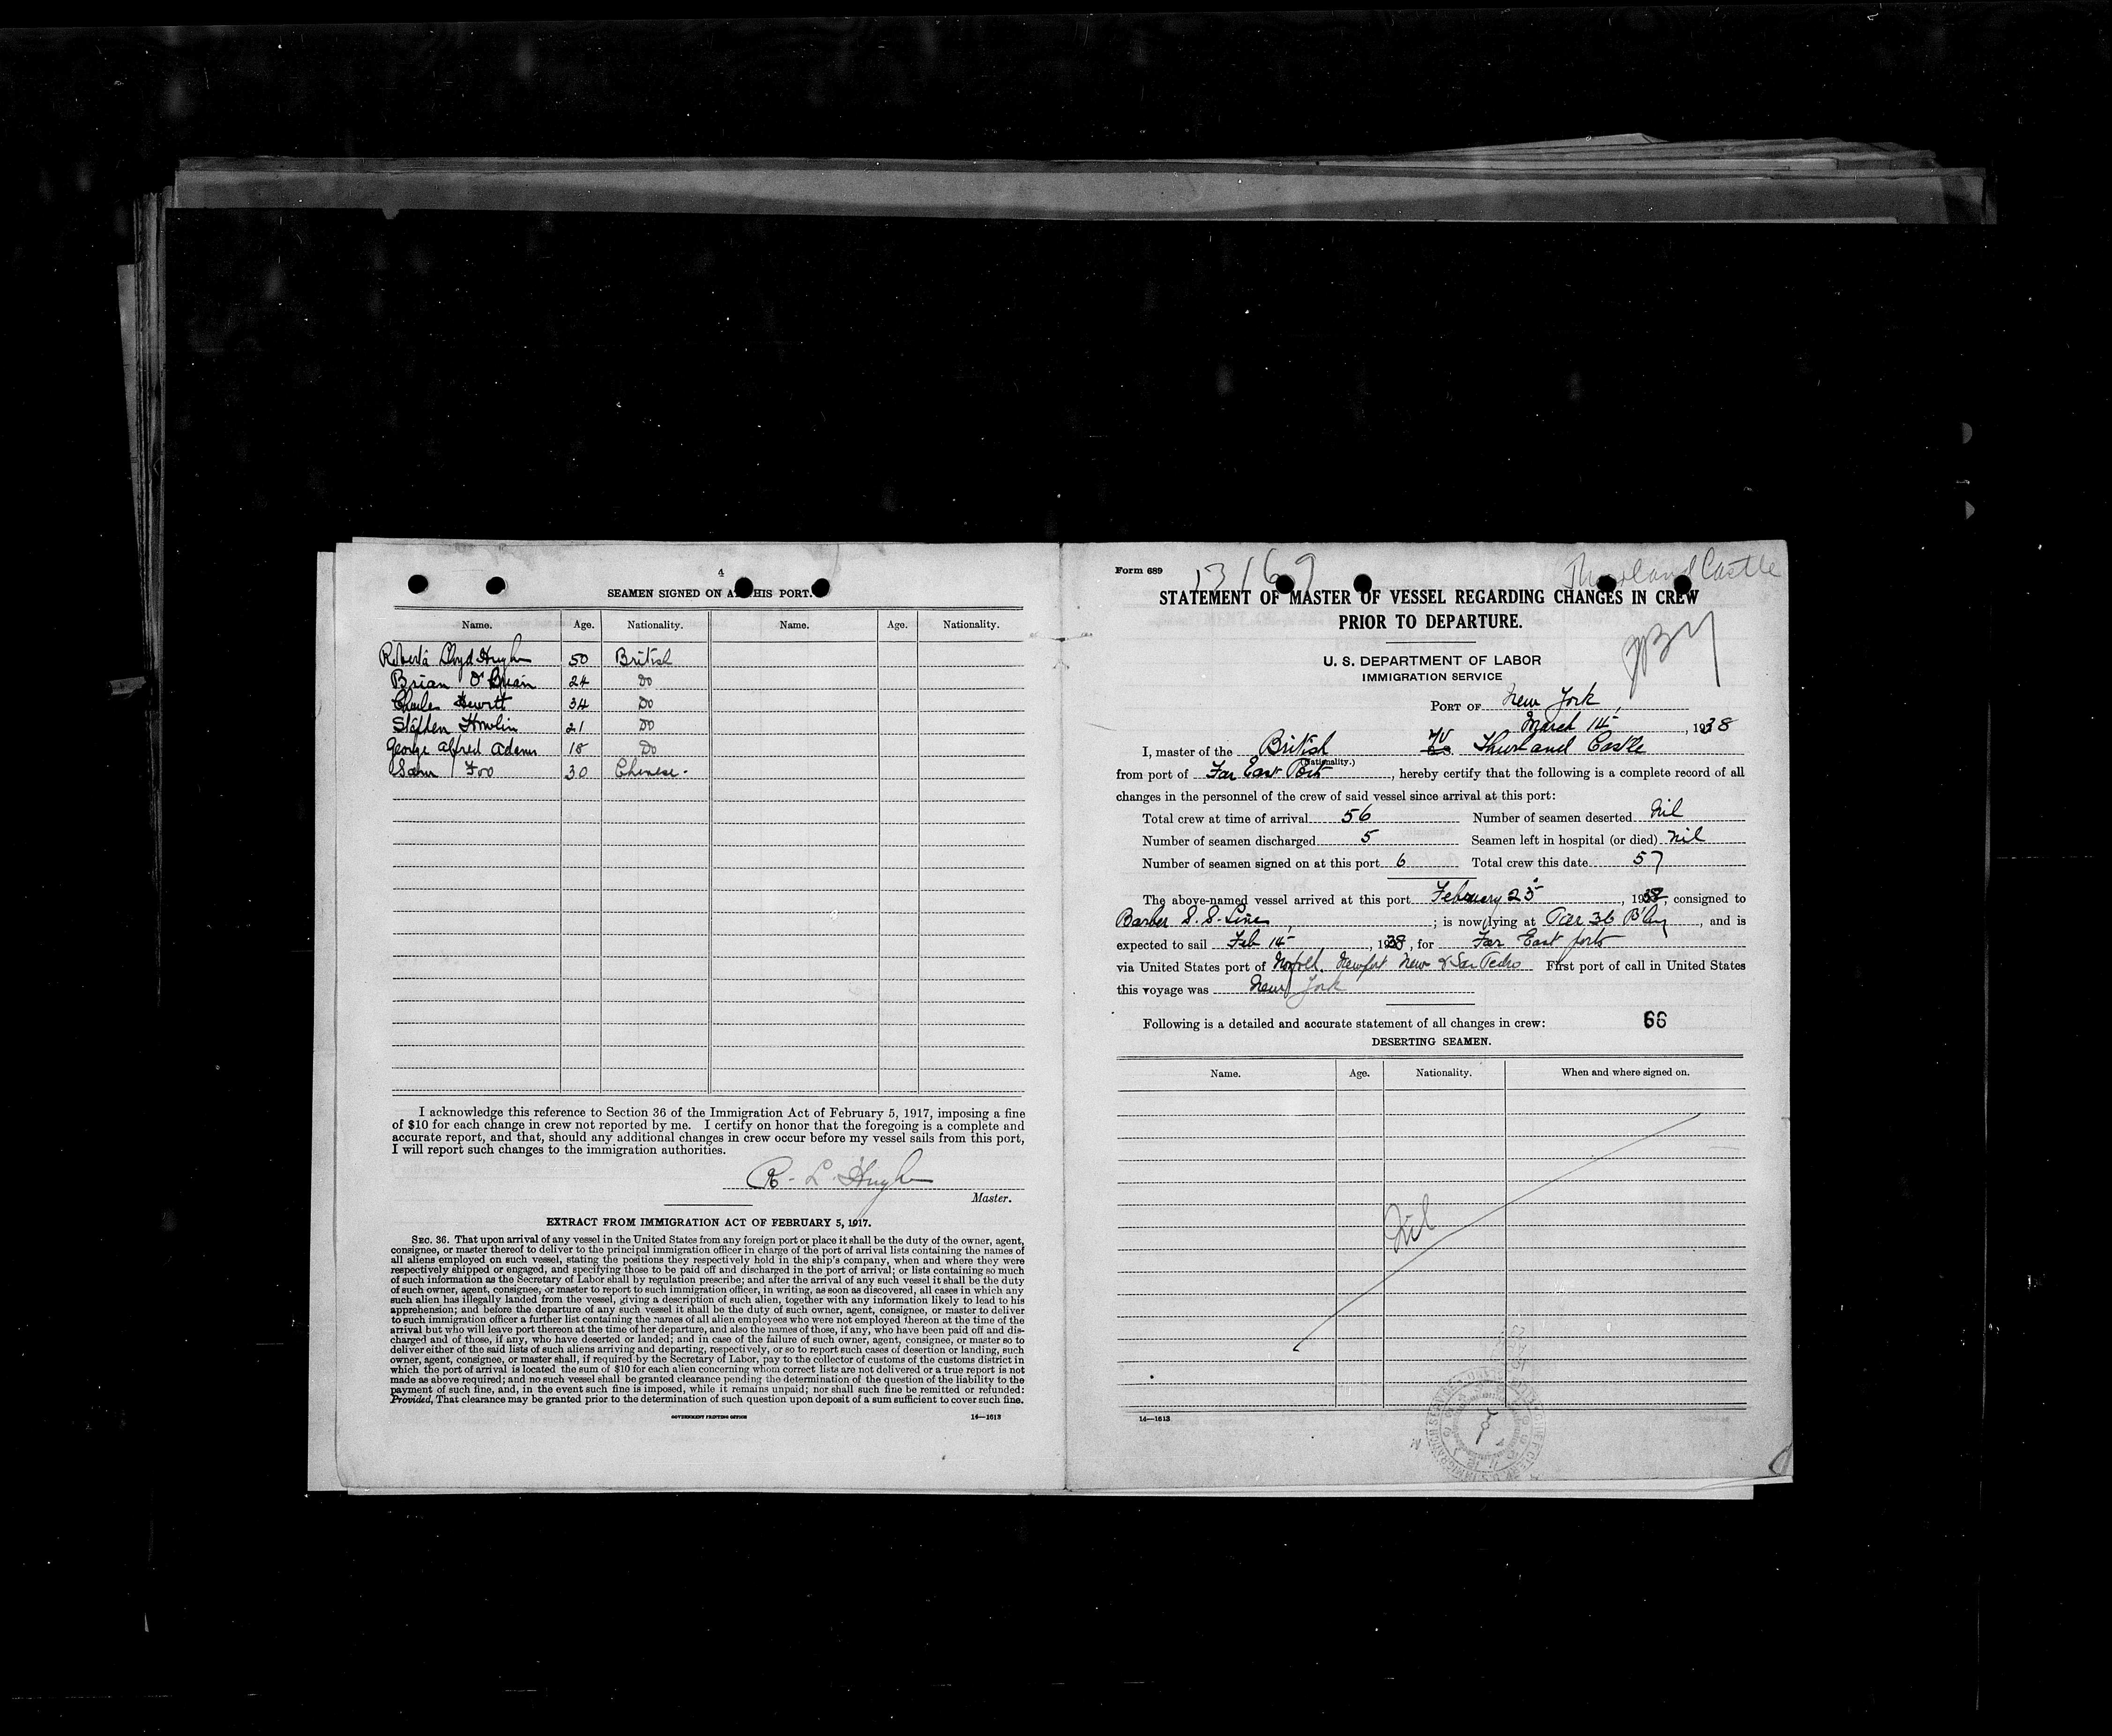 4
SEAMEN SIGNED ON AT THIS PORT.
Name. Age. Nationality. Name. Age. Nationality.
Lloyd Hugh 50 British
Brian O'Brien 24 Do
Charles Hewitt 34 Do
Stephen Howlin 21 Do
George Alfred Adams 18 Do
Sam Foo 30 Chinese.
I acknowledge this reference to Section 36 of the Immigration Act of February 5, 1917, imposing a fine
of $10 for each change in crew not reported by me. I certify on honor that the foregoing is a complete and
accurate report, and that, should any additional changes in crew occur before my vessel sails from this port,
I will report such changes to the immigration authorities.
R. L. Hugh
Master.
EXTRACT FROM IMMIGRATION ACT OF FEBRUARY 5, 1917.
SEC. 36. That upon arrival of any vessel in the United States from any foreign port or place it shall be the duty of the owner, agent,
consignee, or master thereof to deliver to the principal immigration officer in charge of the port of arrival lists containing the names of
all aliens employed on such vessel, stating the positions they respectively hold in the ship's company, when and where they were
respectively shipped or engaged, and specifying those to be paid off and discharged in the port of arrival; or lists containing so much
of such information as the Secretary of Labor shall by regulation prescribe; and after the arrival of any such vessel it shall be the duty
of such owner, agent, consignee, or master to report to such immigration officer, in writing, as soon as discovered, all cases in which any
such alien has illegally landed from the vessel, giving a description of such alien, together with any information likely to lead to his
apprehension; and before the departure of any such vessel it shall be the duty of such owner, agent, consignee, or master to deliver
to such immigration officer a further list containing the names of all alien employees who were not employed thereon at the time of the
arrival but who will leave port thereon at the time of her departure, and also the names of those, if any, who have been paid off and dis-
charged and of those, if any, who have deserted or landed; and in case of the failure of such owner, agent, consignee, or master so to
deliver either of the said lists of such aliens arriving and departing, respectively, or so to report such cases of desertion or landing, such
owner, agent, consignee, or master shall, if required by the Secretary of Labor, pay to the collector of customs of the customs district in
which the port of arrival is located the sum of $10 for each alien concerning whom correct lists are not delivered or a true report is not
made as above required; and no such vessel shall be granted clearance pending the determination of the question of the liability to the
payment of such fine, and, in the event such fine is imposed, while it remains unpaid; nor shall such fine be remitted or refunded:
Provided, That clearance may be granted prior to the determination of such question upon deposit of a sum sufficient to cover such fine.
GOVERNMENT PRINTING OFFICE 14—1613
Form 689 13169 Thurland Castle
STATEMENT OF MASTER OF VESSEL REGARDING CHANGES IN CREW
PRIOR TO DEPARTURE.
U. S. DEPARTMENT OF LABOR
IMMIGRATION SERVICE
PORT OF New York,
March 14, 1938
I, master of the British Thurland Castle
(Nationality.)
from port of Far East Ports, hereby certify that the following is a complete record of all
changes in the personnel of the crew of said vessel since arrival at this port:
Total crew at time of arrival 56 Number of seamen deserted Nil
Number of seamen discharged 5 Seamen left in hospital (or died) Nil
Number of seamen signed on at this port 6 Total crew this date 57
The above-named vessel arrived at this port February 25, 1938, consigned to
Barber S. S. Line; is now lying at Pier 36 B'klyn, and is
expected to sail Feb 14, 1938, for Far East ports
via United States port of Norfolk, Newport News & San Pedro First port of call in United States
this voyage was New York
Following is a detailed and accurate statement of all changes in crew: 66
DESERTING SEAMEN.
Name. Age. Nationality. When and where signed on.
Nil
14—1613